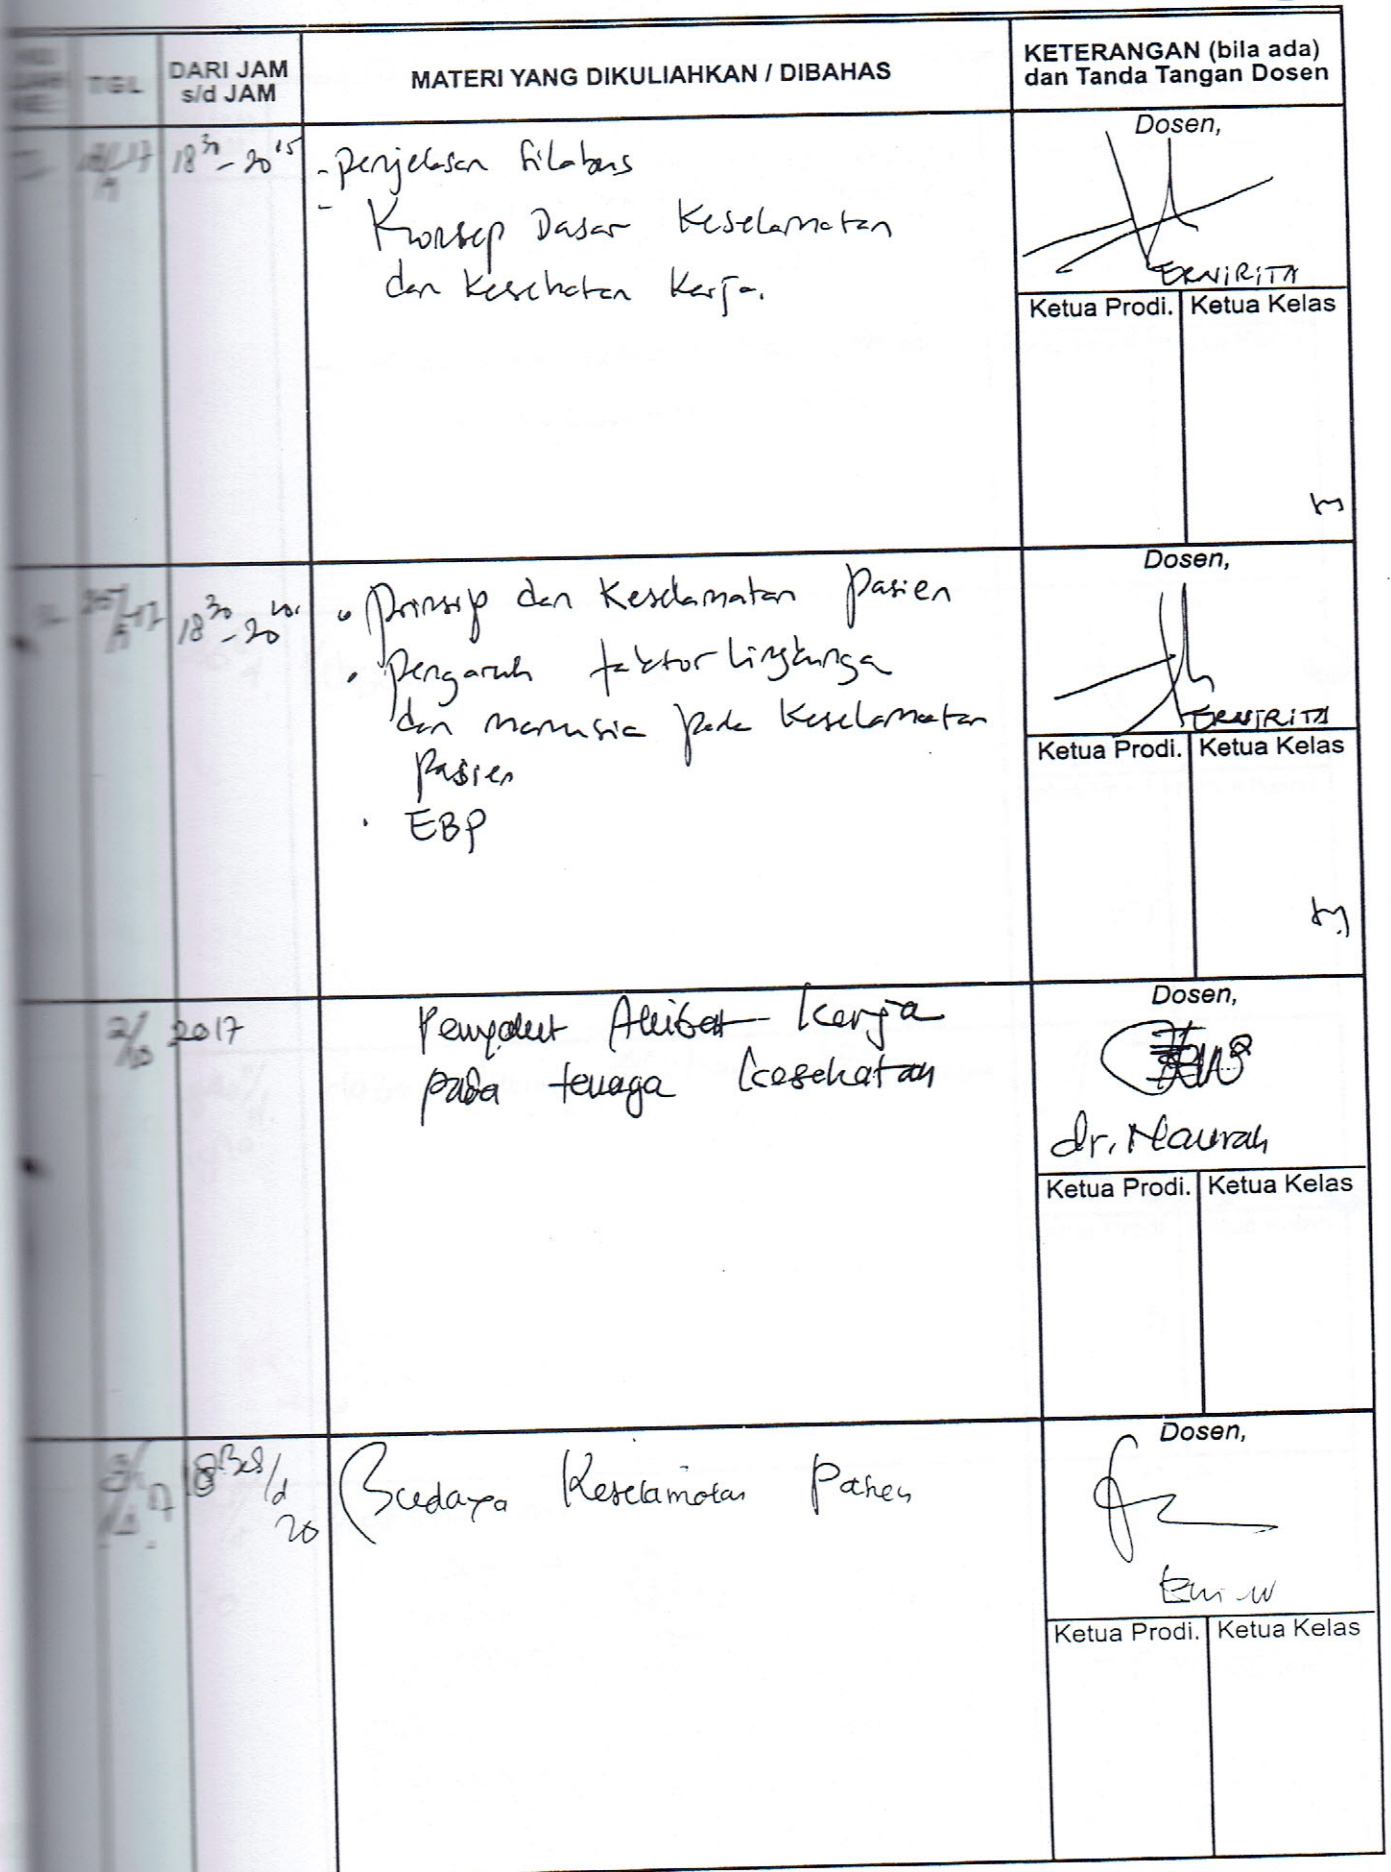 TGL
DARI JAM
s/d JAM
MATERI YANG DIKULIAHKAN / DIBAHAS
KETERANGAN (bila ada)
dan Tanda Tangan Dosen
18 30 - 20 15
- Penjelasan Silabus
- Konsep Dasar Keselamatan
dan Kesehatan Kerja.
Dosen,
ERNIRITA
Ketua Prodi. Ketua Kelas
18 30 - 20
• Prinsip dan Keselamatan Pasien
• Pengaruh faktor lingkunga
dan manusia pada Keselamatan
Pasien
• EBP
Dosen,
ERNIRITA
Ketua Prodi. Ketua Kelas
2/10 2017
Penyakit Akibat Kerja
pada tenaga kesehatan
Dosen,
dr. Naurah
Ketua Prodi. Ketua Kelas
s/d
20
Budaya Keselamatan Pasien
Dosen,
Ketua Prodi. Ketua Kelas